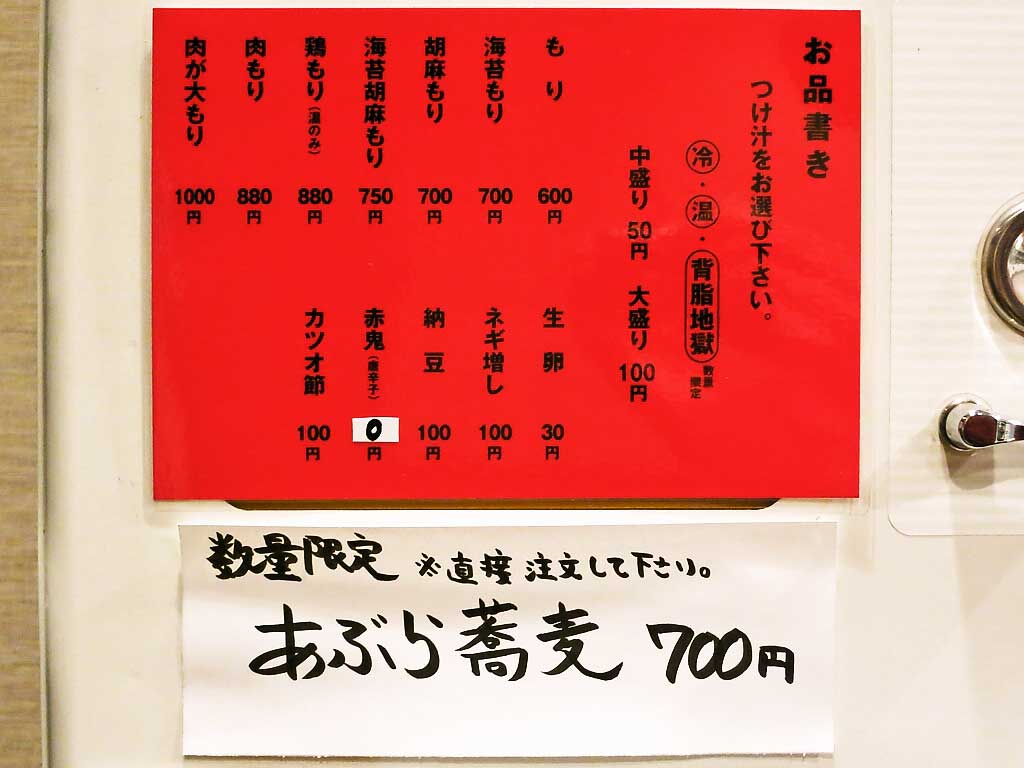 お品書き
つけ汁をお選び下さい。
冷・温・背脂地獄 数量限定
中盛り 50円 大盛り 100円
もり 600円
海苔もり 700円
胡麻もり 700円
海苔胡麻もり 750円
鶏もり(温のみ) 880円
肉もり 880円
肉が大もり 1000円
生卵 30円
ネギ増し 100円
納豆 100円
赤鬼(唐辛子) 0円
カツオ節 100円
数量限定 ※直接注文して下さい。
あぶら蕎麦 700円